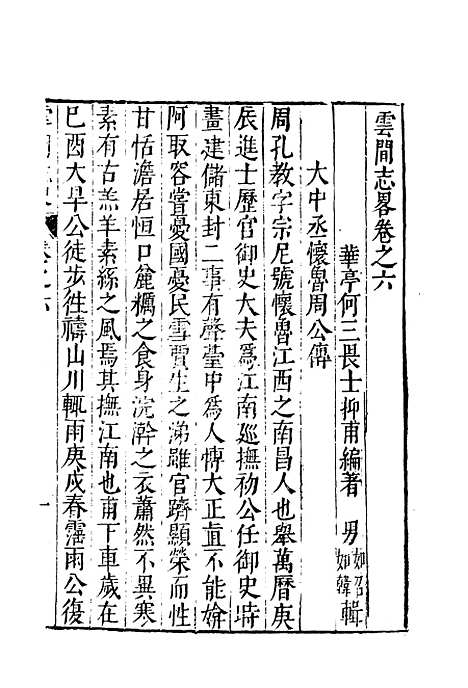 雲間志畧卷之六
華亭何三畏士抑甫編著 男如召如韓輯
大中丞懷魯周公傳
周孔教字宗尼號懷魯江西之南昌人也舉萬曆庚
辰進士歷官御史大夫爲江南廵撫初公任御史時
畫建儲東封二事有聲臺中爲人愽大正直不能媕
阿取容嘗憂國憂民雪賈生之涕雖官躋顯榮而性
甘恬澹居恒口麄糲之食身浣澣之衣蕭然不異寒
素有古羔羊素絲之風焉其撫江南也甫下車歲在
巳酉大旱公徒步徃禱山川輙雨庚戌春霪雨公復
卷之六
一